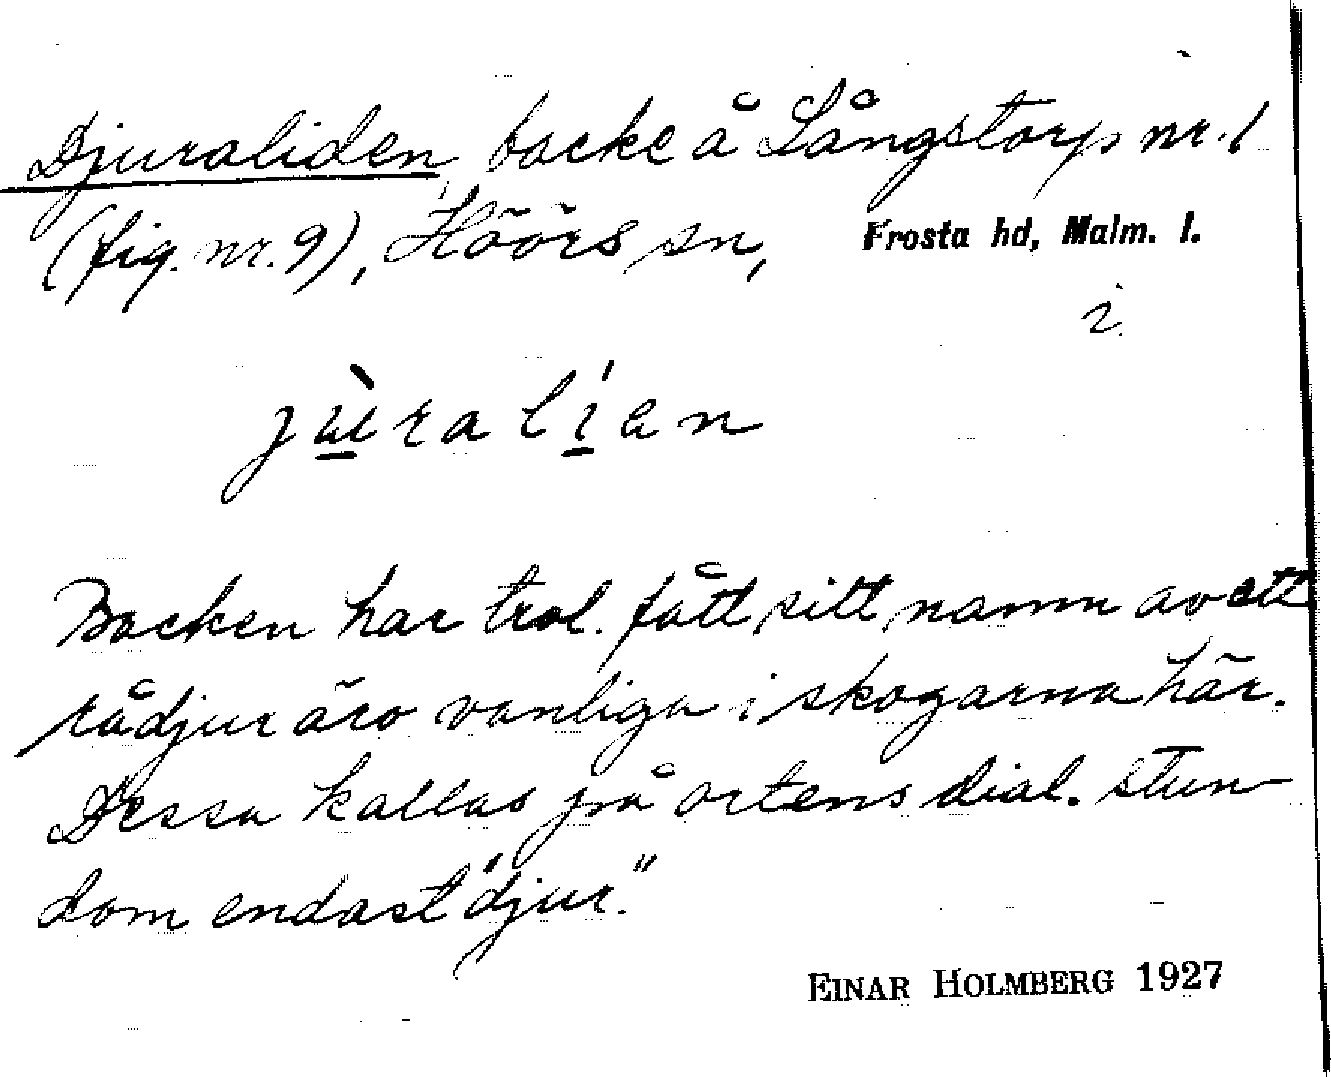 Djuraliden, backe å Långstorp nr. 1
(fig. nr. 9), Höörs sn, Frosta hd, Malm. l.
i
jùralíen
Backen har trol. fått sitt namn av att
rådjur äro vanliga i skogarna här.
Dessa kallas på ortens dial. stun-
dom endast "djur."
EINAR HOLMBERG 1927